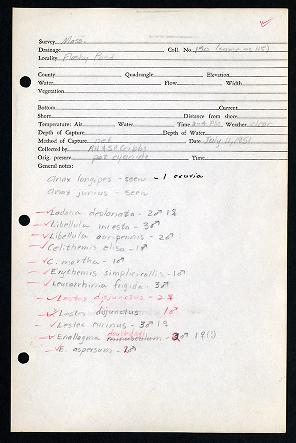 Survey Mass.
Drainage Coll. No. 150 (same as 115)
Locality Flashy Pond
County Quadrangle Elevation
Water Flow Width
Vegetation
Bottom Current
Shore Distance from shore
Temperature: Air Water Time 2-4 P.M. Weather clear
Depth of Capture Depth of Water
Method of Capture net Date July 11, 1951
Collected by R.H. & S.E. Gibbs
Orig. preserv. pot. cyanide Time
General notes:
Anax longipes - seen - 1 exuvia
Anax junius - seen
Ladona deplanata - 2♂ 1♀
Libellula incesta - 3♂
Libellula auripennis - 2♂
Celithemis elisa - 1♂
C. martha - 1♂
Erythemis simplicicollis - 1♂
Leucorrhinia frigida - 3♂
Lestes disjunctus - 2♀
Lestes disjunctus 1♂
Lestes eurinus - 3♂ 1♀
Enallagma minusculum - 3♂
E. aspersum - 1♂